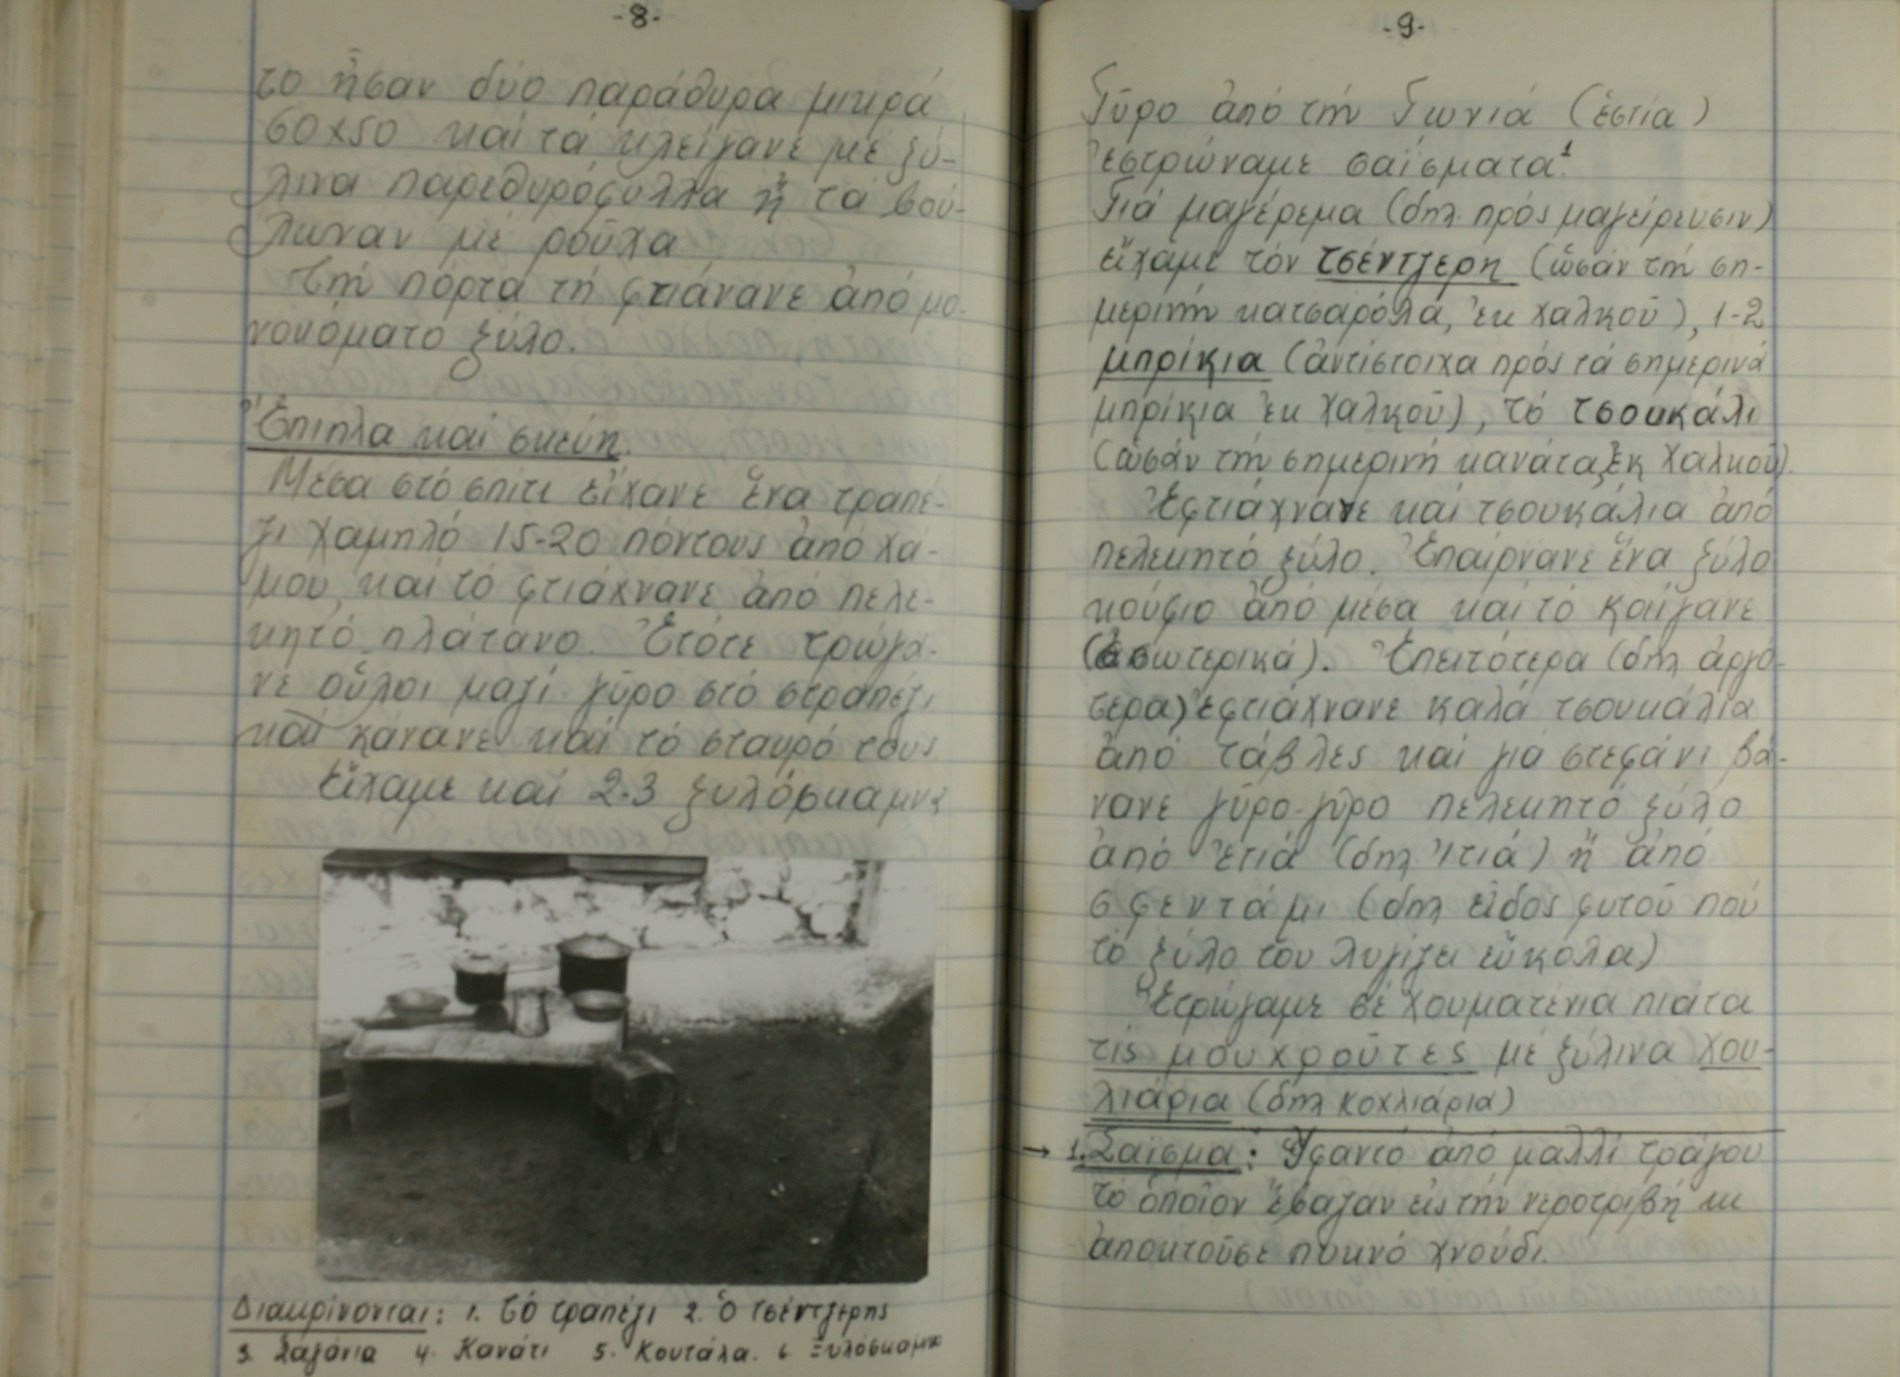 -8-
το ἦσαν δύο παράθυρα μικρά
60×50 καί τά κλείγανε μέ ξύ-
λινα παρεθυρόφυλλα ἤ τά βού-
λωναν μέ ροῦχα
Τήν πόρτα τή φτιάνανε ἀπό μο-
νοκόματο ξύλο.
Ἔπιπλα καί σκεύη.
Μέσα στό σπίτι εἴχανε ἕνα τραπέ-
ζι χαμηλό 15-20 πόντους ἀπό χά-
μου, καί τό φτιάχνανε ἀπό πελε-
κητό πλάτανο. Ἐτότε τρώγα-
νε οὖλοι μαζί γῦρο στό στραπέζι
καί κάνανε καί τό σταυρό τους
Εἴχαμε καί 2-3 ξυλόσκαμνα
Διακρίνονται: 1. Τό τραπέζι 2. Ὁ τσέντζερης
3. Σαγάνια 4. Κανάτι 5. Κουτάλα. 6 Ξυλόσκαμνα
-9-
Γῦρο ἀπό τήν Γωνιά (ἑστία)
ἐστρώναμε σαΐσματα.¹
Γιά μαγέρεμα (δηλ. πρός μαγείρευσιν)
εἴχαμε τόν τσέντζερη (ὡσάν τήν ση-
μερινήν κατσαρόλα, ἐκ χαλκοῦ), 1-2
μπρίκια (ἀντίστοιχα πρός τά σημερινά
μπρίκια ἐκ χαλκοῦ), τό τσουκάλι
(ὡσάν τήν σημερινή κανάτα ἐκ χαλκοῦ).
Ἐφτιάχνανε καί τσουκάλια ἀπό
πελεκητό ξύλο. Ἐπαίρνανε ἕνα ξύλο
κούφιο ἀπό μέσα καί τό καίγανε
(ἐσωτερικά). Ἐπειτότερα (δηλ ἀργό-
τερα) ἐφτιάχνανε καλά τσουκάλια
ἀπό τάβλες καί γιά στεφάνι βά-
νανε γῦρο-γῦρο πελεκητό ξύλο
ἀπό ἐτιά (δηλ ἰτιά) ἤ ἀπό
σφεντάμι (δηλ εἶδος φυτοῦ πού
τό ξύλο του λυγίζει εὔκολα)
Ἐτρώγαμε σέ χουματένια πιάτα
τίς μουχροῦτες μέ ξύλινα χου-
λιάρια (δηλ κοχλιάρια)
→ 1. Σάϊσμα: Ὑφαντό ἀπό μαλλί τράγου
τό ὁποῖον ἔβαζαν εἰς τήν νεροτριβή κι
ἀποκτοῦσε πυκνό χνούδι.